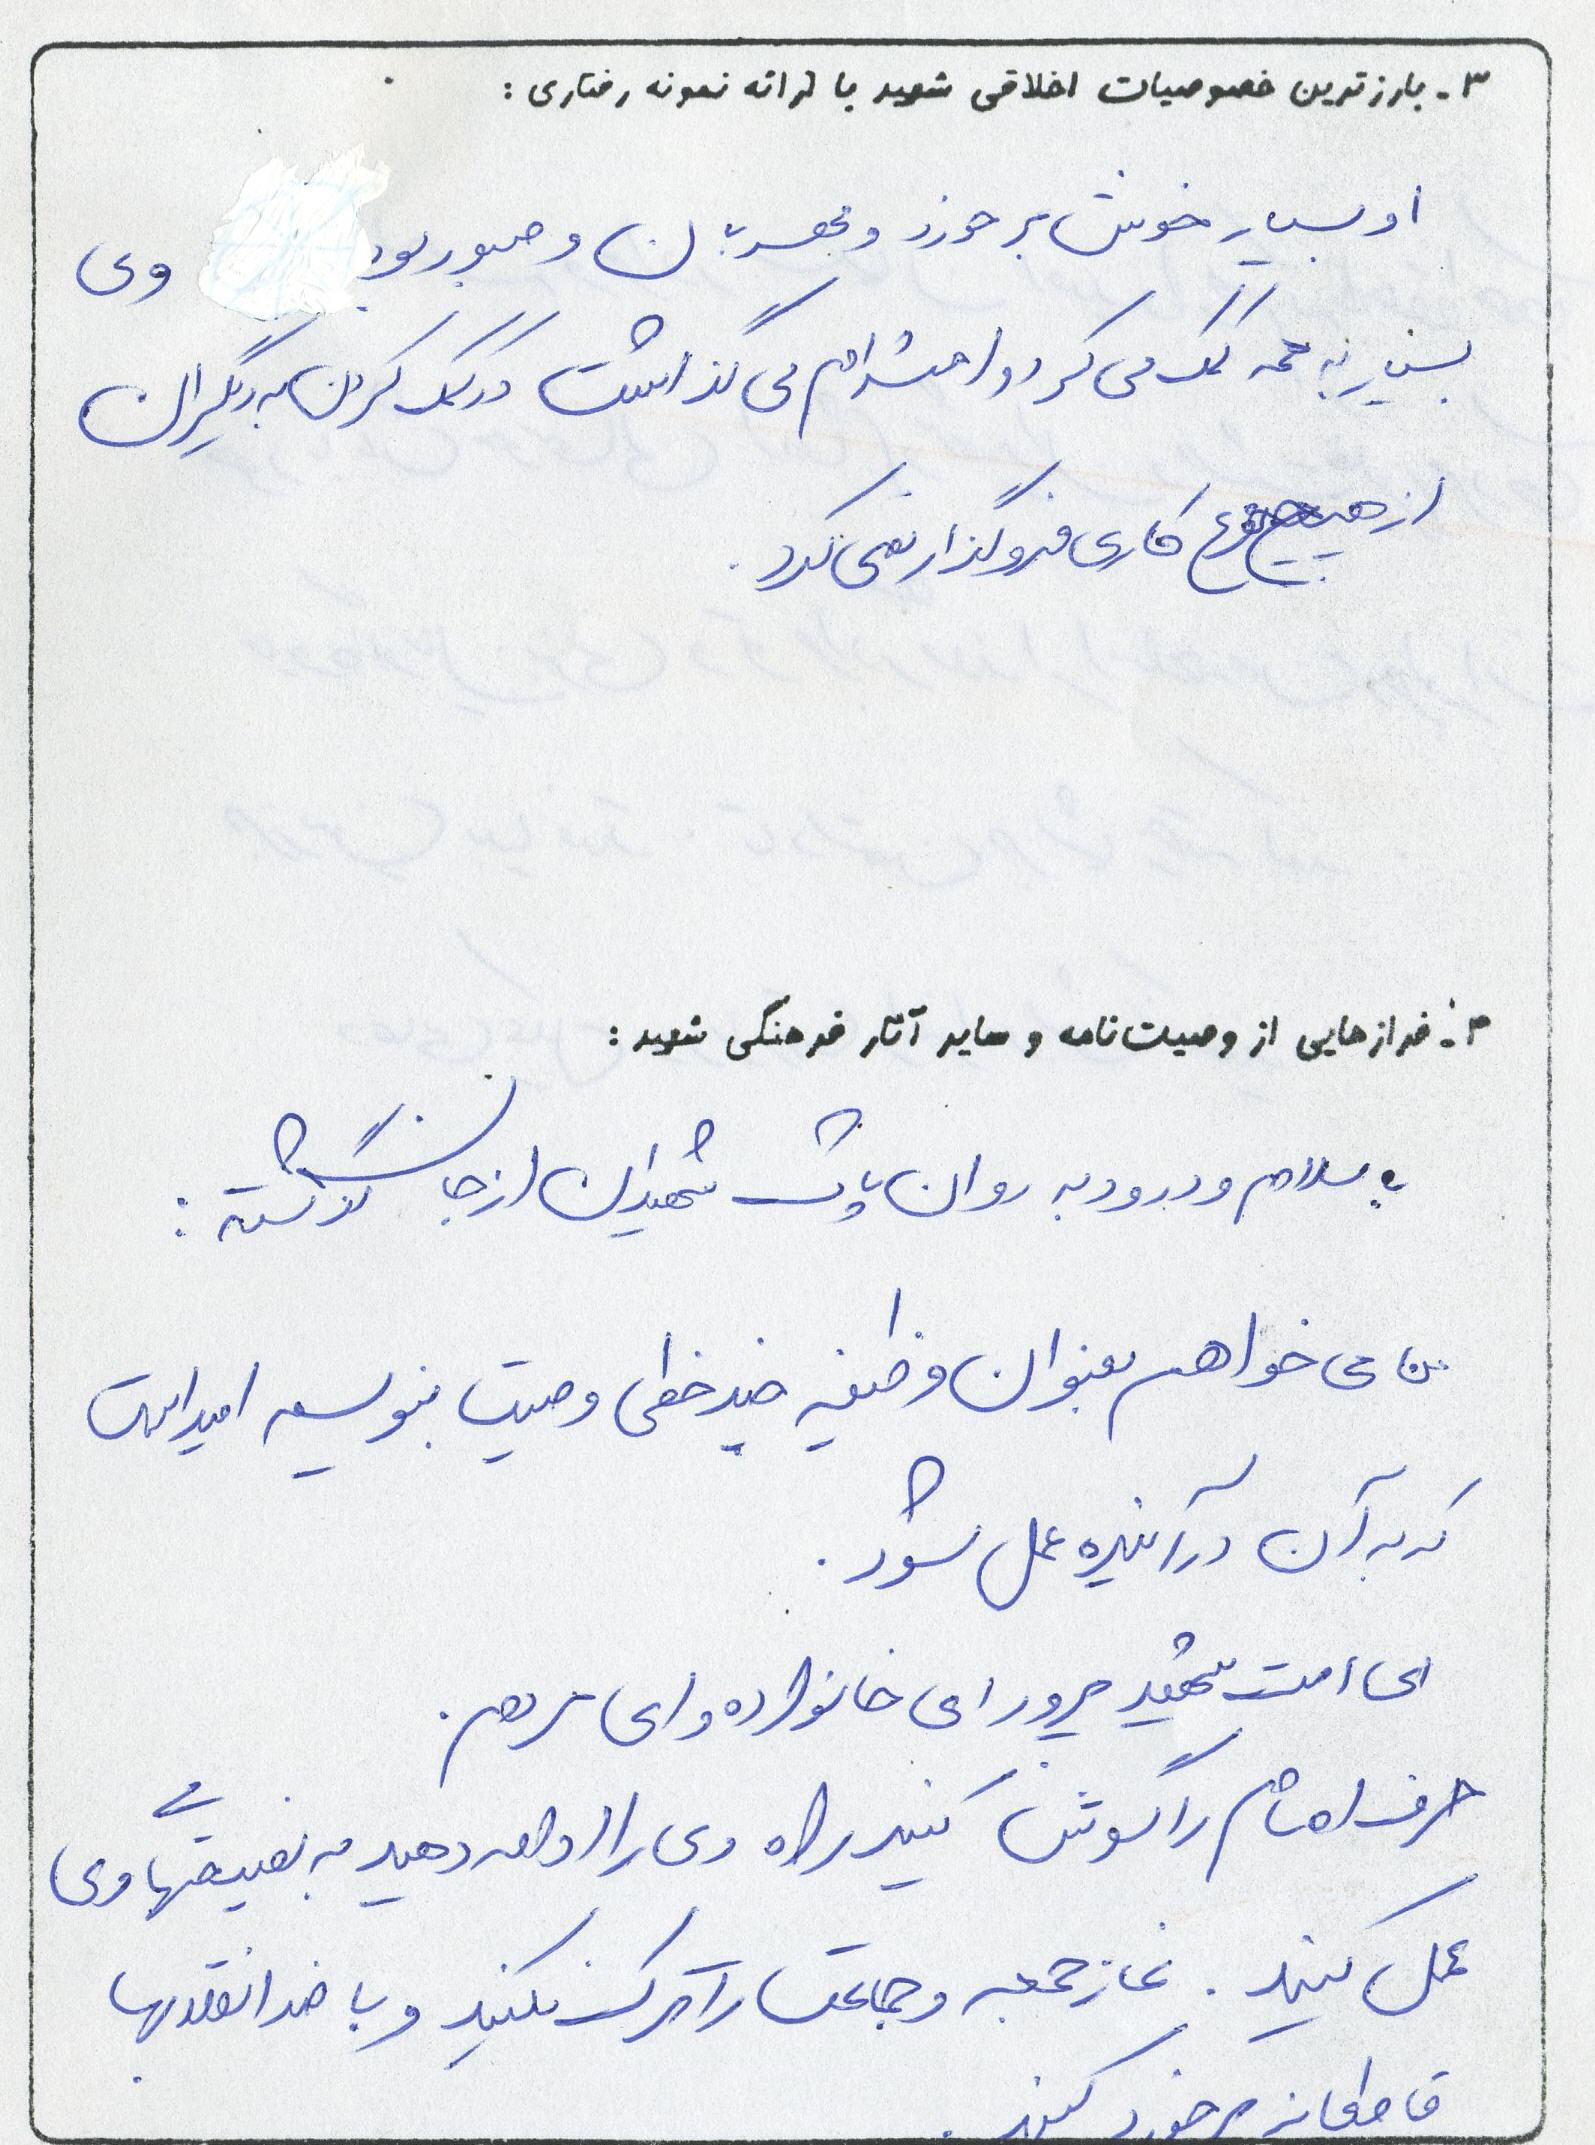 ۳- بارزترین خصوصیات اخلاقی شهید با ارائه نمونه رفتاری :
او بسیار خوش برخورد و مهربان و صبور بود وی
بسیار به همه کمک می کرد و احترام می گذاشت در کمک کردن به دیگران
از هیچ نوع کاری فروگذار نمی کرد .
۴- فرازهایی از وصیت‌نامه و سایر آثار فرهنگی شهید :
با سلام و درود به روان پاک شهیدان از جان گذشته :
من می خواهم بعنوان وظیفه چند خطی وصیت بنویسم امید است
که به آن در آینده عمل شود .
ای امت شهید پرور ای خانواده و ای مردم .
حرف امام را گوش کنید راه وی را ادامه دهید به نصیحتهای وی
عمل کنید . نماز جمعه و جماعت را ترک نکنید و با ضد انقلابها
قاطعانه برخورد کنید .